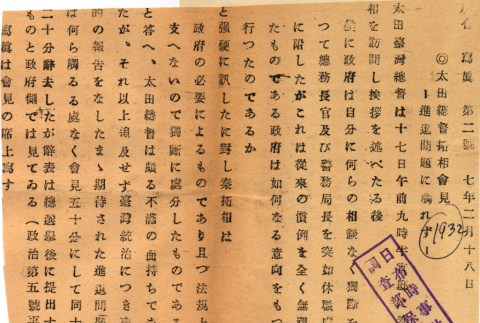 寫眞 第二號 七年二月十八日
◎太田總督拓相會見
―進退問題に觸れず―
太田臺灣總督は十七日午前九時半
相を訪問し挨拶を述べたる後
に政府は自分に何らの相談なく獨斷を
つて總務長官及び警務局長を突如休職
に附したがこれは從來の慣例を全く無
たものである政府は如何なる意向をも
行つたのであるか
と强硬に訊したに對し秦拓相は
政府の必要によるものであり且つ法規上
支へないので獨斷に處分したものである
と答へ、太田總督は頗る不滿の面持ちで
たが、それ以上追及せず臺灣統治につき
的の報告をなしたまゝ期待された進退問
は何ら觸るる處なく會見五十分にして同十
二十分辭去したが辭表は總選擧後に提出す
ものと政府側では見てゐる(政治第五號
寫眞は會見の席上寫す
(1932)
日布時事
調査部